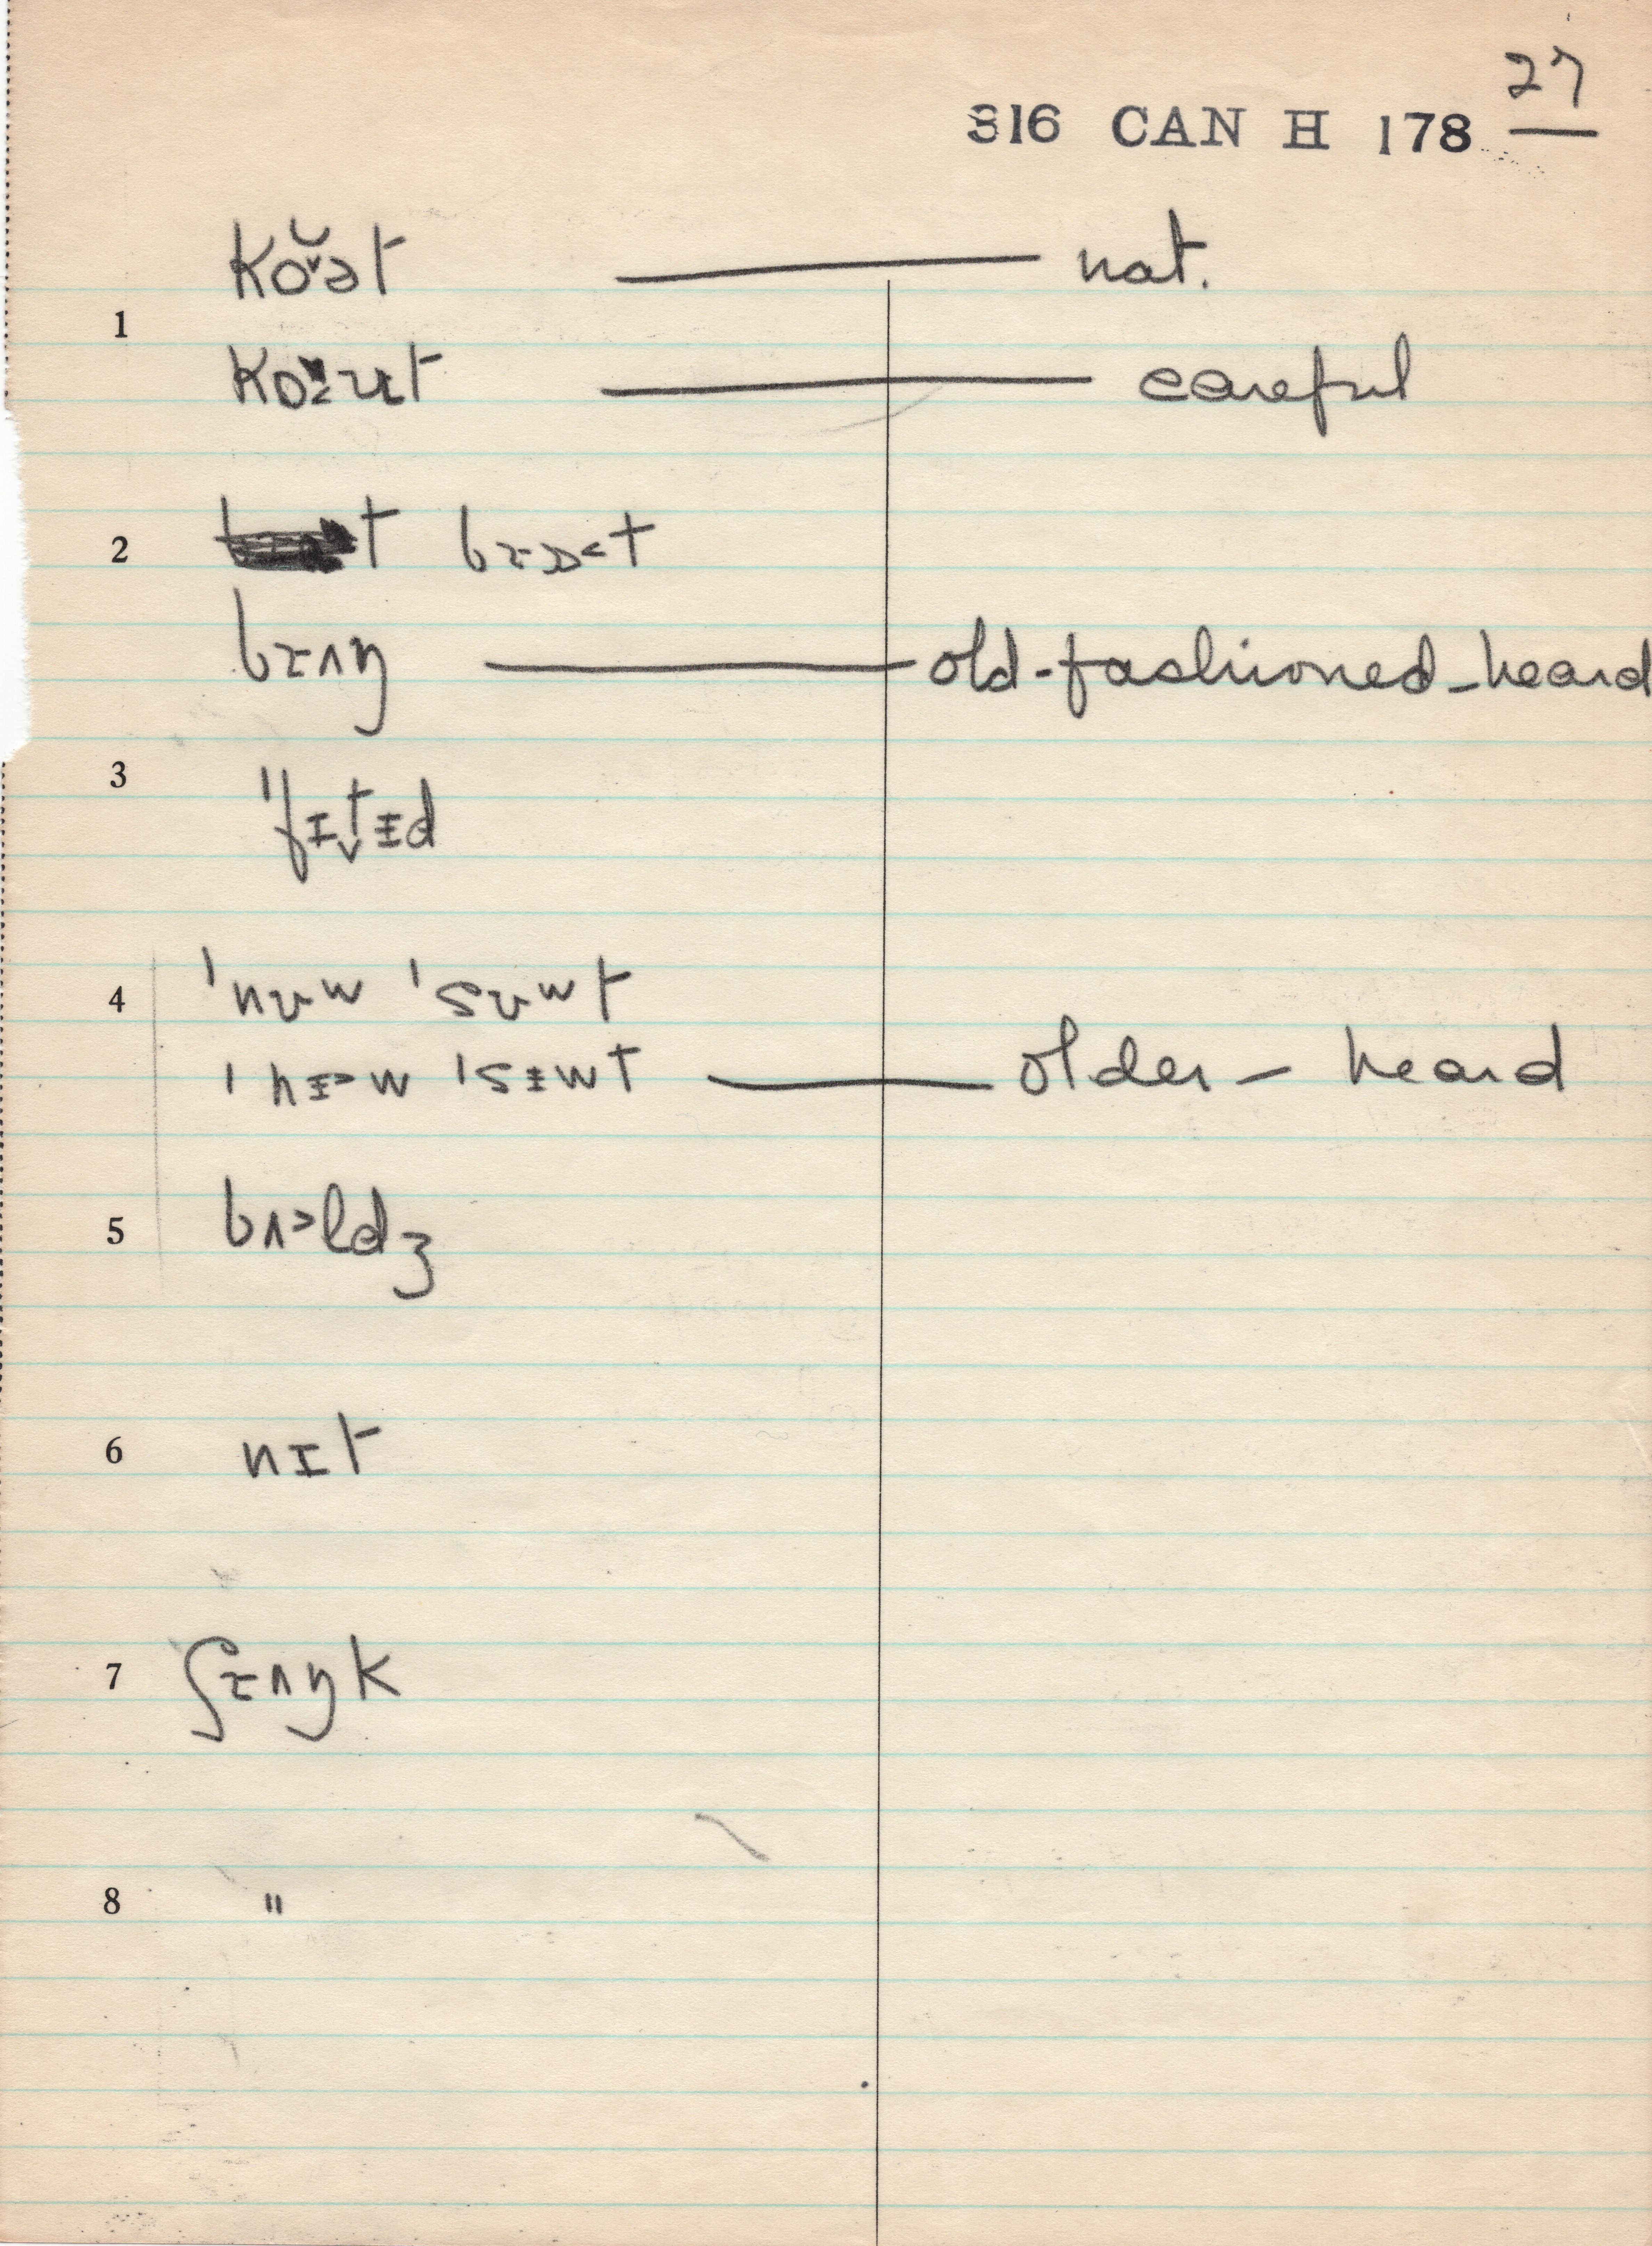 27
316 CAN H 178
koə̯̆t — nat.
1
ko̯ɪut — careful
2 bɪɔ<t
bɪʌŋ — old-fashioned - heard
3
ˈfɪt̬ɨd
4 ˈnʊʷ ˈsʊʷt
ˈnɨ>w ˈsɨwt — older - heard
5 bʌ>ldʒ
6 nɪt
7 ʃɪʌŋk
8 "